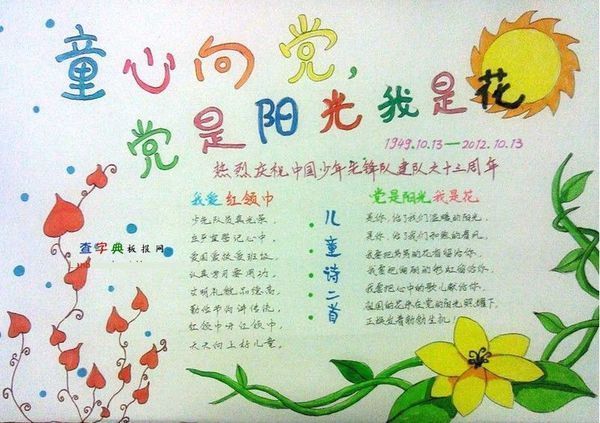 童心向党，
党是阳光我是花
1949.10.13—2012.10.13
热烈庆祝中国少年先锋队建队六十三周年
我爱红领巾
少先队员真光荣，
庄严宣誓记心中，
爱国爱校爱班级，
认真学习要用功，
文明礼貌品德高，
勤俭节约讲传统，
红领巾呀红领巾，
天天向上好儿童。
儿童诗二首
党是阳光我是花
是你，给了我们温暖的阳光，
是你，给了我们和煦的春风，
我要把
我要把绚丽的彩虹留给你，
我要把心中的歌儿献给你，
祖国的花朵在党的阳光照耀下，
正焕发着勃勃生机！
查字典板报网